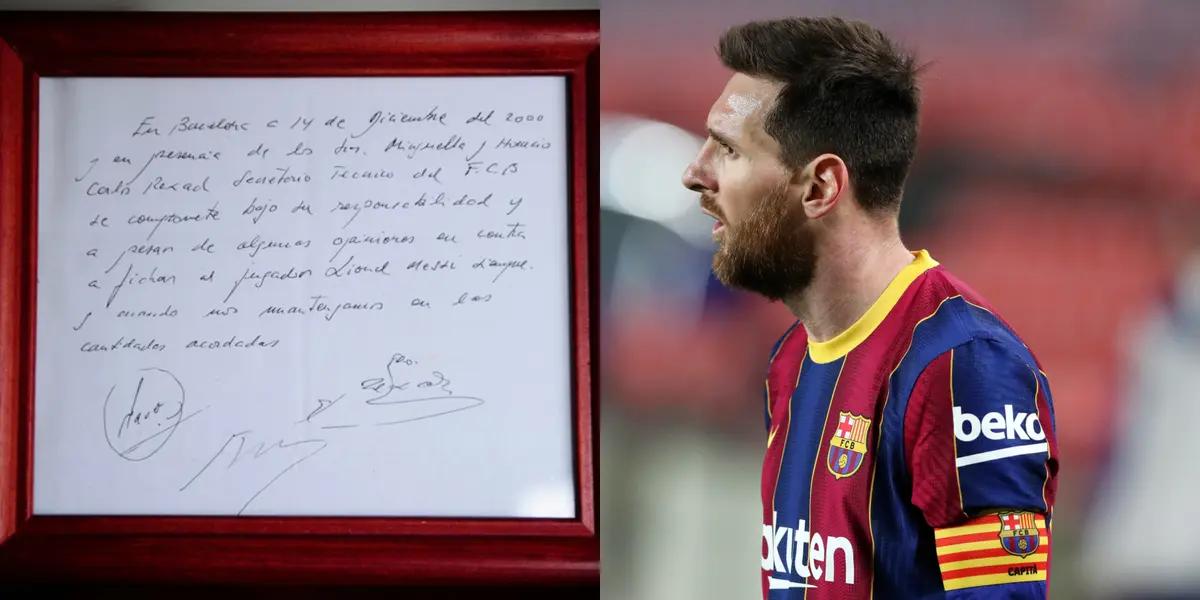 En Barcelona a 14 de Diciembre del 2000
y en presencia de los Srs. Minguella y Horacio
Carlos Rexach Secretario Técnico del F.C.B
se compromete bajo su responsabilidad y
a pesar de algunas opiniones en contra
a fichar al jugador Lionel Messi siempre
y cuando nos mantengamos en las
cantidades acordadas
FCB
beko
FCB
CAPITÀ
akuten